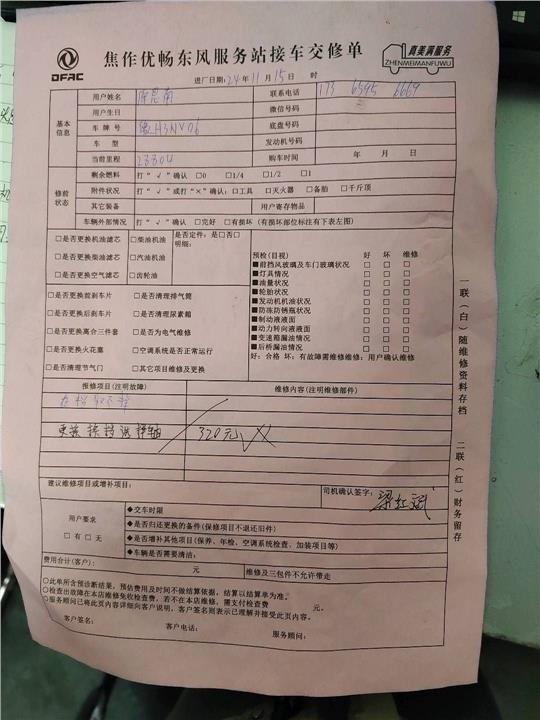 DFAC
焦作优畅东风服务站接车交修单
真美满服务
ZHENMEIMANFUWU
进厂日期:24年11月15日 时
基本信息
用户姓名 联系电话
用户生日 微信号码
车牌号 豫H3NV06 底盘号码
车型 发动机号码
当前里程 23304 购车时间 年 月 日
修前状态
剩余燃料 打“√”确认 □0 □1/4 □1/2 □1
附件状况 打“√”或打“×”确认:□工具 □灭火器 □备胎 □千斤顶
其它装备 用户寄存物品
车辆外部情况 打“√”确认 □完好 □有损坏(有损坏部位标注有下表左图)
□是否更换机油滤芯 □柴油机油 是否定件:是□否□
明细:
□是否更换柴油滤芯 □汽油机油
□是否更换空气滤芯 □齿轮油
□是否更换前刹车片 □是否清理排气筒
□是否更换后刹车片 □是否清理尿素箱
□是否更换离合三件套 □是否为电气维修
□是否更换火花塞 □空调系统是否正常运行
□是否清理节气门 □其它项目维修及更换
预检(目视) 好 坏 维修
■前挡风玻璃及车门玻璃状况 □ □ □
■灯具情况 □ □ □
■油量状况 □ □ □
■轮胎状况 □ □ □
■发动机机油状况 □ □ □
■防冻防锈瓶状况 □ □ □
■制动液液面 □ □ □
■动力转向液液面 □ □ □
■变速箱漏油情况 □ □ □
■后桥漏油情况 □ □ □
好:合格 坏:有故障需维修维修:用户确认维修
报修项目(注明故障) 维修内容(注明维修部件)
更换换挡选择轴 320元
建议维修项目或增补项目:
司机确认签字:
用户要求
□有□无
◆交车时限
◆是否归还更换的备件(保修项目不退还旧件)
◆是否增补其他项目(保养、年检、空调系统检查、加装项目等)
◆车辆是否需要清洁:
费用合计(客户): 元 维修及三包件不允许带走
○此单所含预诊断结果,预估费用及时间不做结算依据,结算以结算单为准。
○检查出故障在本店维修免收检查费,若不在本店维修,需支付检查费 元。
○服务顾问已将此页内容详细向客户说明,客户签名则表示已理解并接受此页内容。
客户签名: 客户电话: 服务顾问:
一联(白)随维修资料存档
二联(红)财务留存